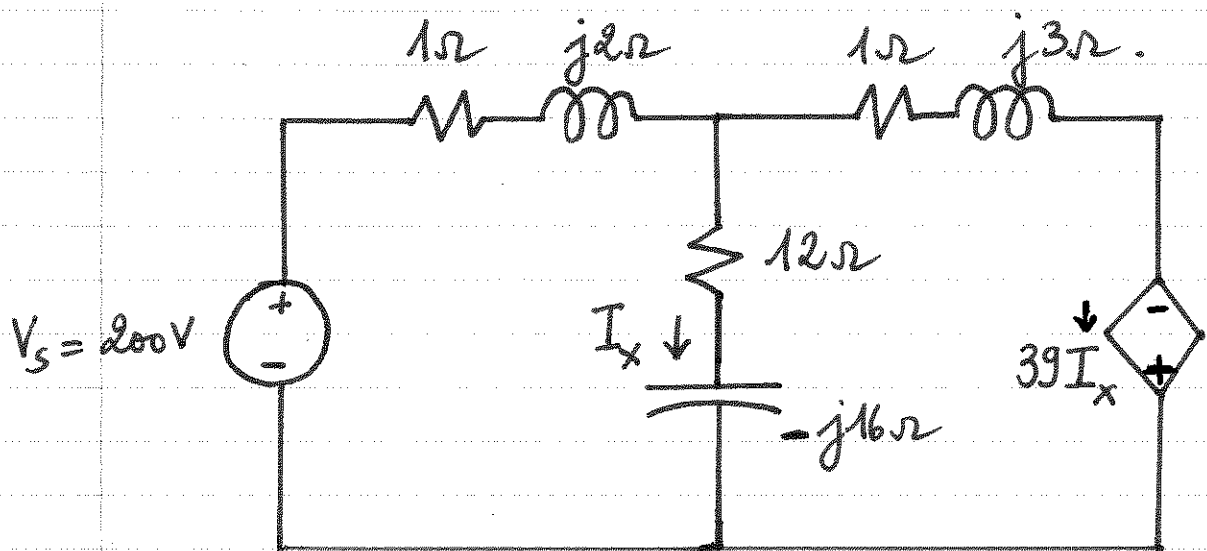 1Ω j2Ω 1Ω j3Ω.
12Ω
+ I_x ↓ ↓ -
V_s = 200V 39I_x
- +
-j16Ω